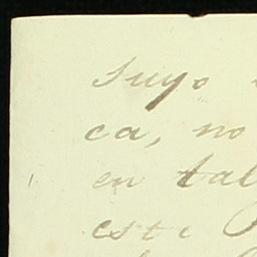 suyo
ca, no
en tal
este